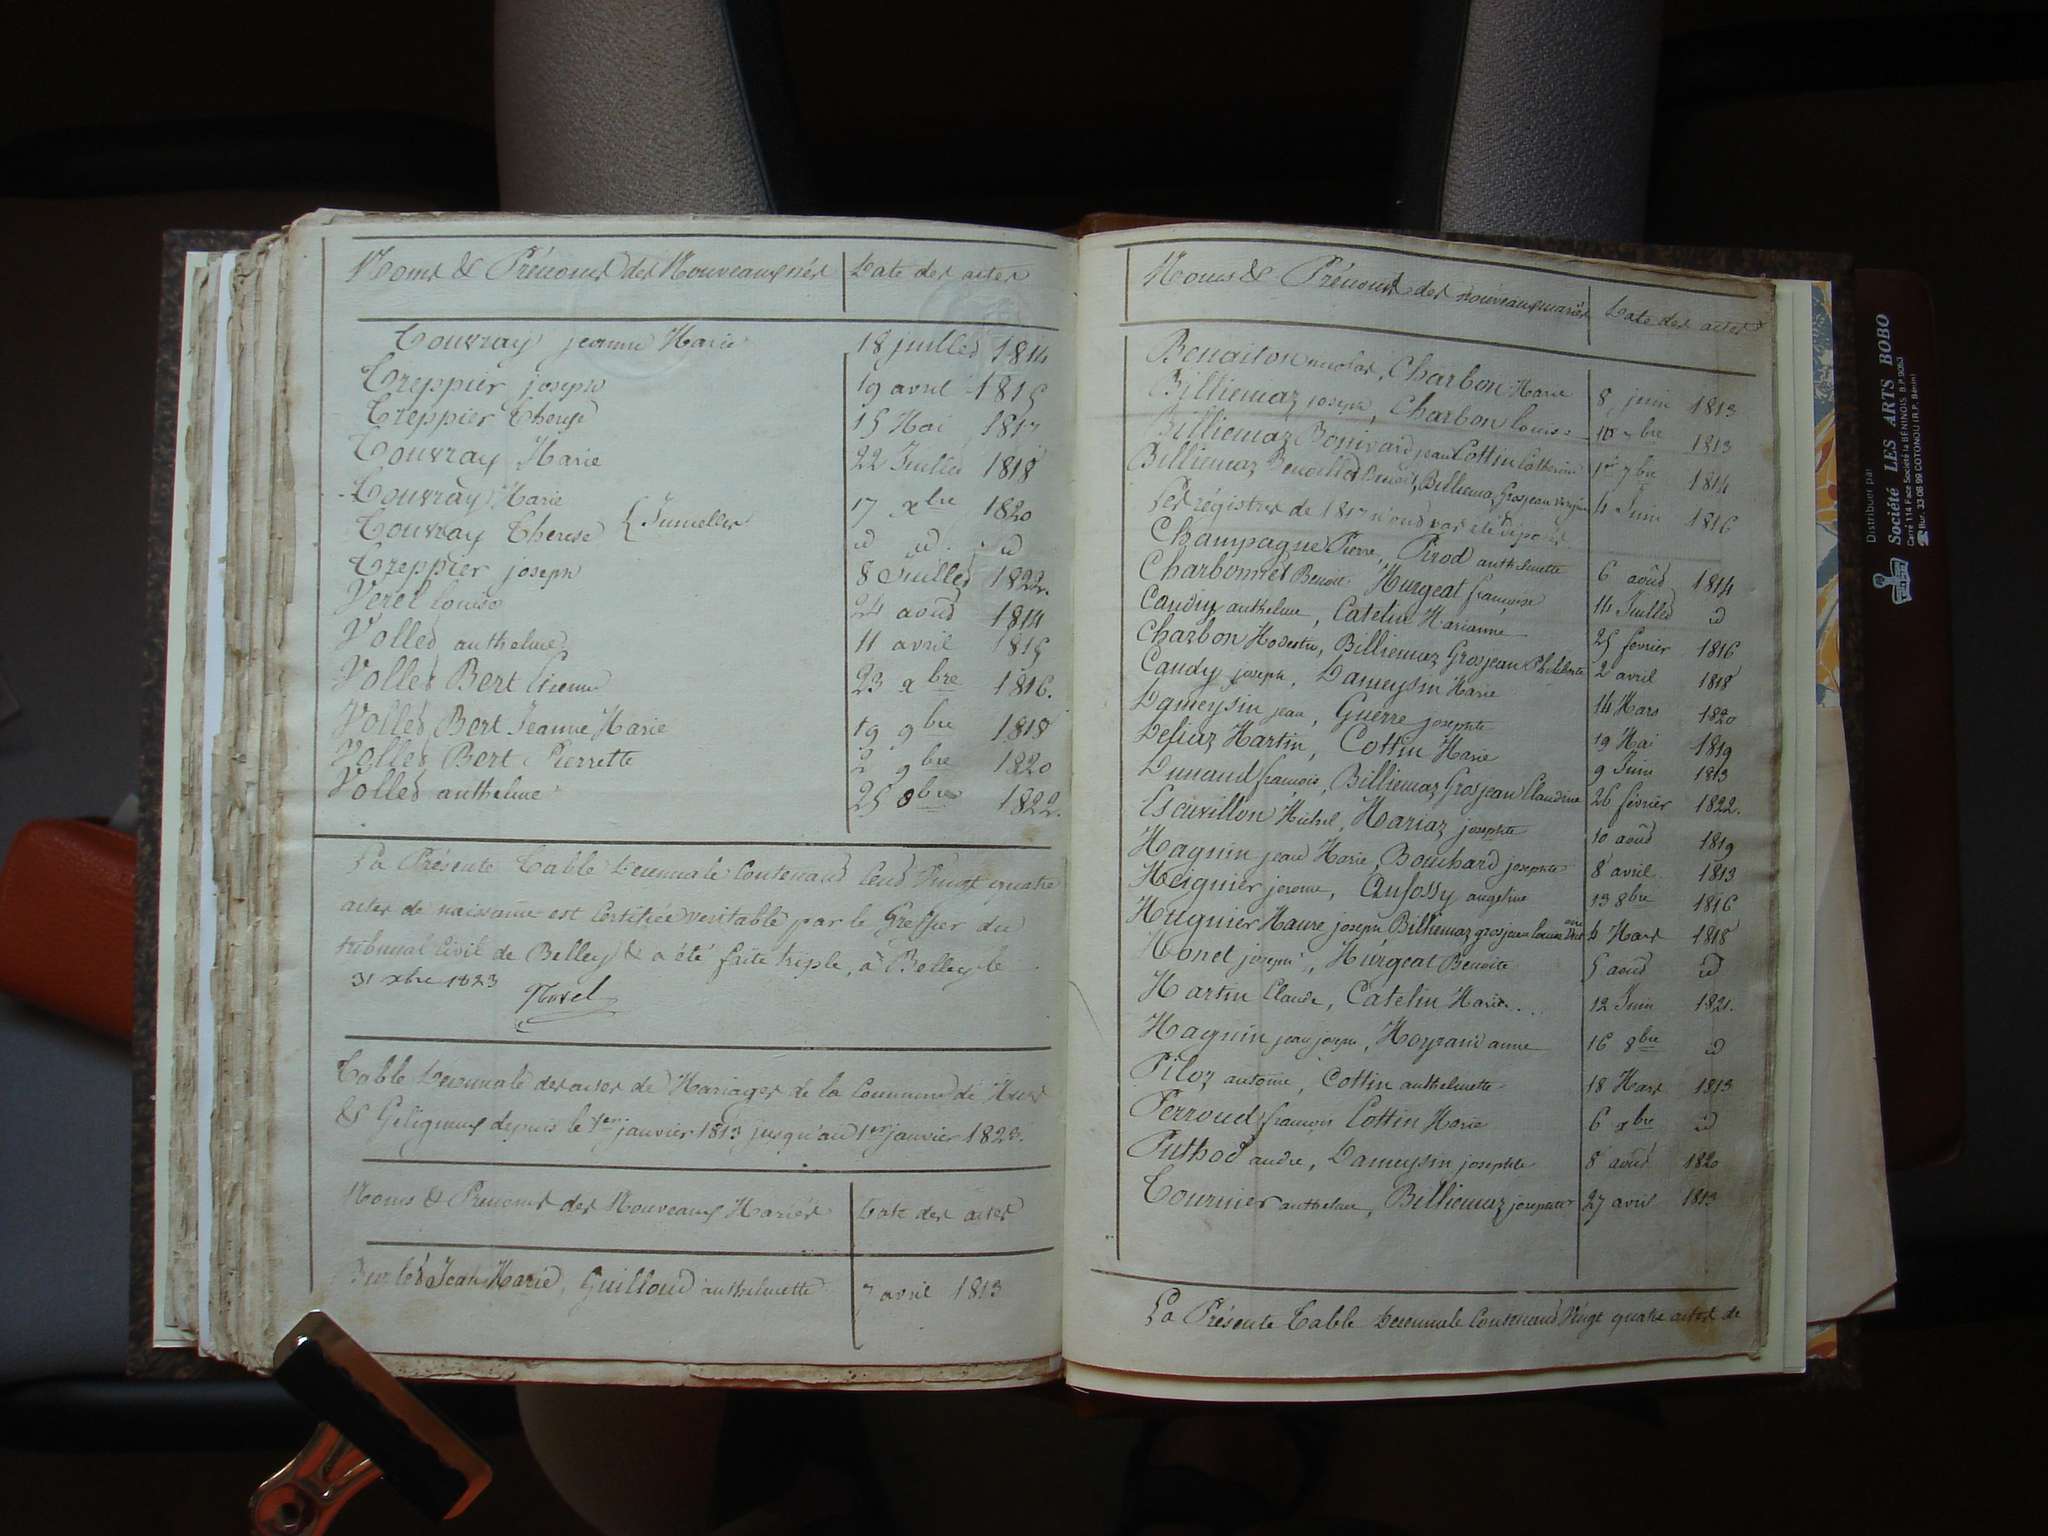 Noms & Prénoms des Nouveaux nés Date des actes
Touvray jeanne Marie 18 juillet 1814
Treppier joseph 19 avril 1815
Treppier Therese 15 Mai 1817
Touvray Marie 22 Juillet 1818
Touvray Marie 17 xbre 1820
Touvray Therese { Jumelles id id id
Treppier joseph 8 Juillet 1822.
Veret Louise 24 août 1814
Vollet anthelme 11 avril 1815
Vollet Bert 23 xbre 1816.
Vollet Bert Jeanne Marie 19 9bre 1818
Vollet Bert Pierrette 2 9bre 1820
Vollet anthelme 25 8bre 1822.
La Présente Table Decennale Contenant Cent Vingt quatre
actes de naissance est Certifiée veritable par le Greffier du
tribunal Civil de Belley & a été faite triple, à Belley le
31 xbre 1823
Table Décennale des actes de Mariages de la Commune de
& Geligneux depuis le 1er janvier 1813 jusqu'au 1er janvier 1823.
Noms & Prenoms des Nouveaux Mariés Date des actes
Burlet Jean Marie, Guilloud anthelmette 7 avril 1813
Noms & Prénoms des nouveaux mariés Date des actes
Benoiton nicolas, Charbon Marie 8 juin 1813
Billiemaz joseph, Charbon Louise 7bre 1813
Billiemaz Bonivard jean Cottin Catherine 1er 7bre 1814
Billiemaz Benoit, Billiemaz Grosjean 4 Juin 1816
Les régistres de 1817 n'ont pas été déposés
Champagne Pierre, Pirod anthelmette 6 août 1814
Charbonnet Benoit Murgeat françoise 14 Juillet id
Candy anthelme, Catelin Marianne 25 fevrier 1816
Charbon Modeste, Billiemaz Grosjean Philiberte 2 avril 1818
Candy joseph, Dameysin Marie 14 Mars 1820
Dameysin jean, Guerre josephte 19 Mai 1819
Defiaz Martin, Cottin Marie 9 Juin 1813
Dunand françois, Billiemaz Grosjean Claudine 26 février 1822.
Escuvillon Michel, Mariaz josephte 10 août 1819
Magnin jean Marie, Bouchard josephte 8 avril 1813
Meignier jerome, Anfossy angeline 13 8bre 1816
Mugnier Maure joseph Billiemaz grosjean Louise Mars 1818
Monet joseph, Murgeat Benoite 5 août id
Martin Claude, Catelin Marie 12 Juin 1821.
Magnin jean joseph, Moyrand anne 16 8bre id
Piloz antoine, Cottin anthelmette 18 Mars 1813
Perroud françois Cottin Marie 6 xbre id
Puthod andre, Dameysin josephte 8 août 1820
Tournier anthelme, Billiemaz josephte 27 avril 1813
La Présente Table Decennale Contenant Vingt quatre actes de
Distribuer par
Société LES ARTS BOBO
Carré 114 Face Société la BÉNINOIS B.P. 9083
Bur. 33 06 99 COTONOU (R.P. Bénin)